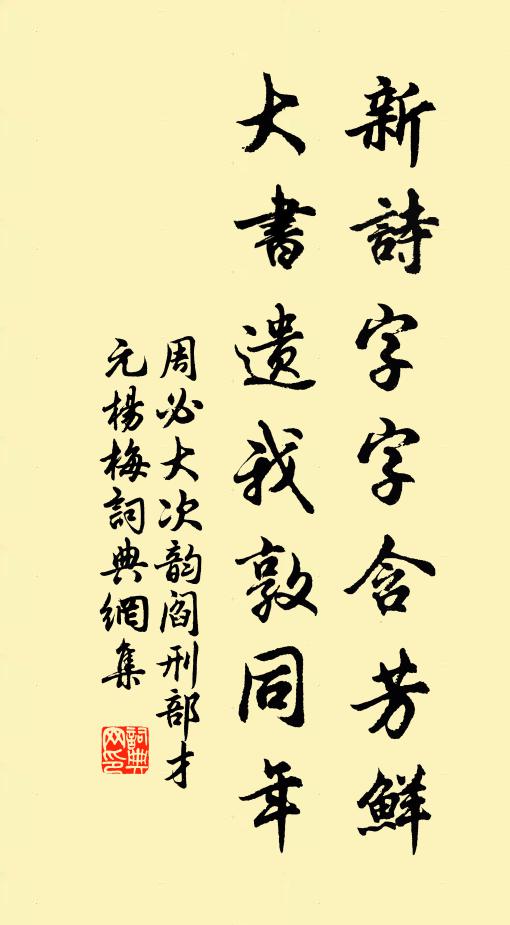 新詩字字含芳鮮
大書遺我敦同年
周必大次韵阎刑部才
元楊梅詞典網集
詞典
网印